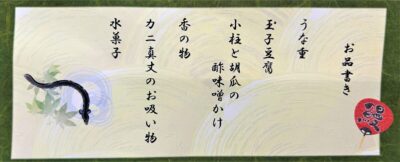 お品書き
うな重
玉子豆腐
小柱と胡瓜の
酢味噌かけ
香の物
カニ真丈のお吸い物
水菓子